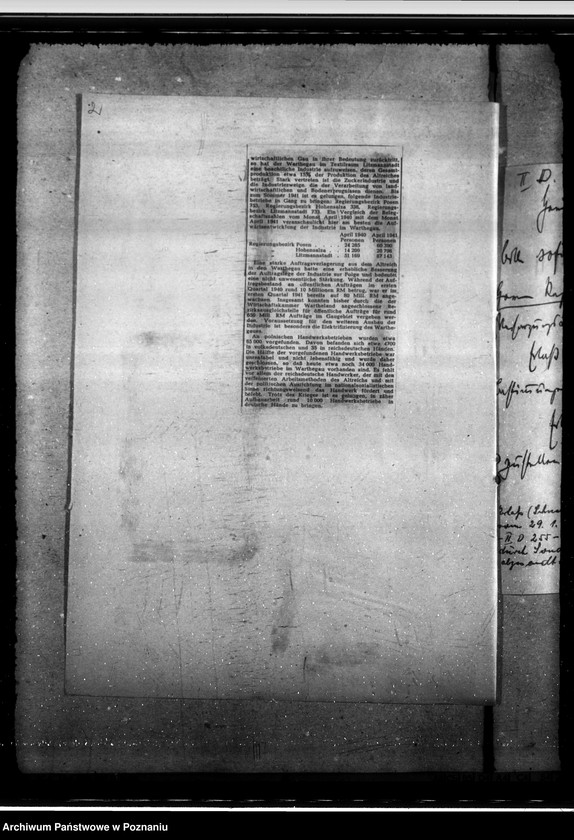 2.
wirtschaftlichen Gau in ihrer Bedeutung zurücktritt,
so hat der Warthegau im Textilraum Litzmannstadt
eine beachtliche Industrie aufzuweisen, deren Gesamt-
produktion etwa 15% der Produktion des Altreiches
beträgt. Stark vertreten ist die Zuckerindustrie und
die Industriezweige, die der Verarbeitung von land-
wirtschaftlichen und Bodenerzeugnissen dienen. Bis
zum Sommer 1941 ist es gelungen, folgende Industrie-
betriebe in Gang zu bringen: Regierungsbezirk Posen
Regierungsbezirk Hohensalza 338, Regierungs-
bezirk Litzmannstadt 733. Ein Vergleich der Beleg-
schaftszahlen vom Monat April 1940 mit dem Monat
April 1941 veranschaulicht hier am besten die Auf-
wärtsentwicklung der Industrie im Warthegau.
April 1940 April 1941
Personen Personen
Regierungsbezirk Posen
Hohensalza
Litzmannstadt
Eine starke Auftragsverlagerung aus dem Altreich
in den Warthegau hatte eine erhebliche Besserung
der Auftragslage der Industrie zur Folge und bedeutete
eine nicht unwesentliche Stärkung. Während der Auf-
tragsbestand an öffentlichen Aufträgen im ersten
Quartal 1940 rund 10 Millionen RM betrug, war er im
ersten Quartal 1941 bereits auf 80 Mill. RM ange-
wachsen. Insgesamt konnten bisher durch die der
Wirtschaftskammer Wartheland angeschlossene Be-
zirksausgleichsstelle für öffentliche Aufträge für rund
Mill. RM Aufträge im Gaugebiet vergeben wer-
den. Voraussetzung für den weiteren Ausbau der
Industrie ist besonders die Elektrifizierung des Warthe-
gaues.
An polnischen Handwerksbetrieben wurden etwa
vorgefunden. Davon befanden sich etwa
in volksdeutschen und 39 in reichsdeutschen Händen.
Die Hälfte der vorgefundenen Handwerksbetriebe war
unrentabel und nicht lebensfähig und wurde daher
geschlossen, so daß heute etwa noch 24 000 Hand-
werksbetriebe im Warthegau vorhanden sind. Es fehlt
vor allem der reichsdeutsche Handwerker, der mit den
verfeinerten Arbeitsmethoden des Altreichs und mit
der politischen Ausrichtung im nationalsozialistischen
Sinne richtungweisend das Handwerk fördert und
belebt. Trotz des Krieges ist es gelungen, in zäher
Aufbauarbeit rund 10 000 Handwerksbetriebe in
deutsche Hände zu bringen.
II D.
vom 29. 1.
- II D 255 -
Archiwum Państwowe w Poznaniu